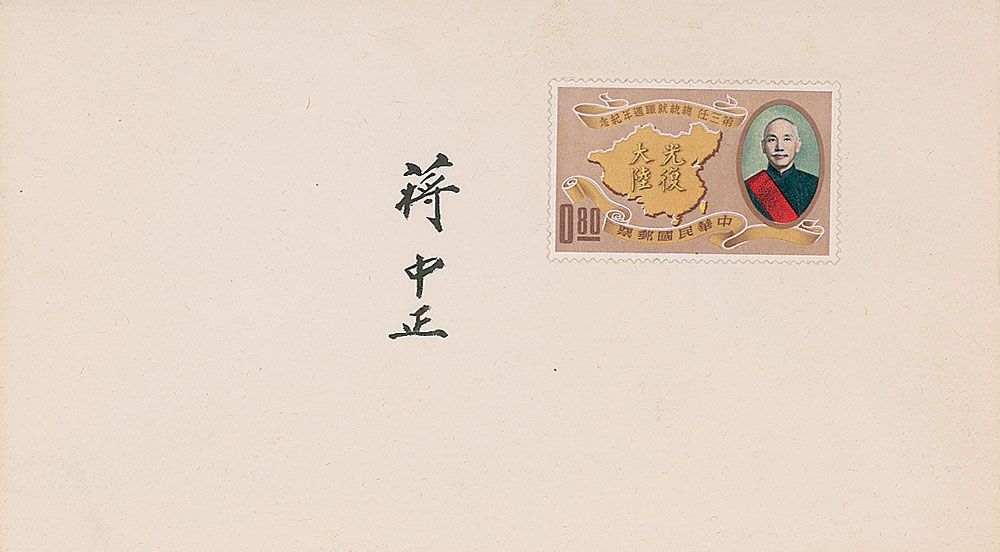 蔣中正
第三任總統就職週年紀念
光復
大陸
0.80
中華民國郵票